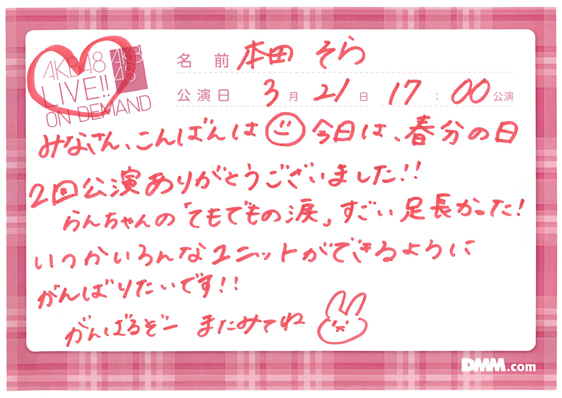 AKB48
LIVE!!
ON DEMAND
AKB
48
名前 本田 そら
公演日 3月21日 17:00公演
みなさん、こんばんは 今日は、春分の日
2回公演ありがとうございました!!
らんちゃんの「てもでもの涙」すごい足長かった!
いつかいろんなユニットができるように
がんばりたいです!!
がんばるぞー またみてね
DMM.com